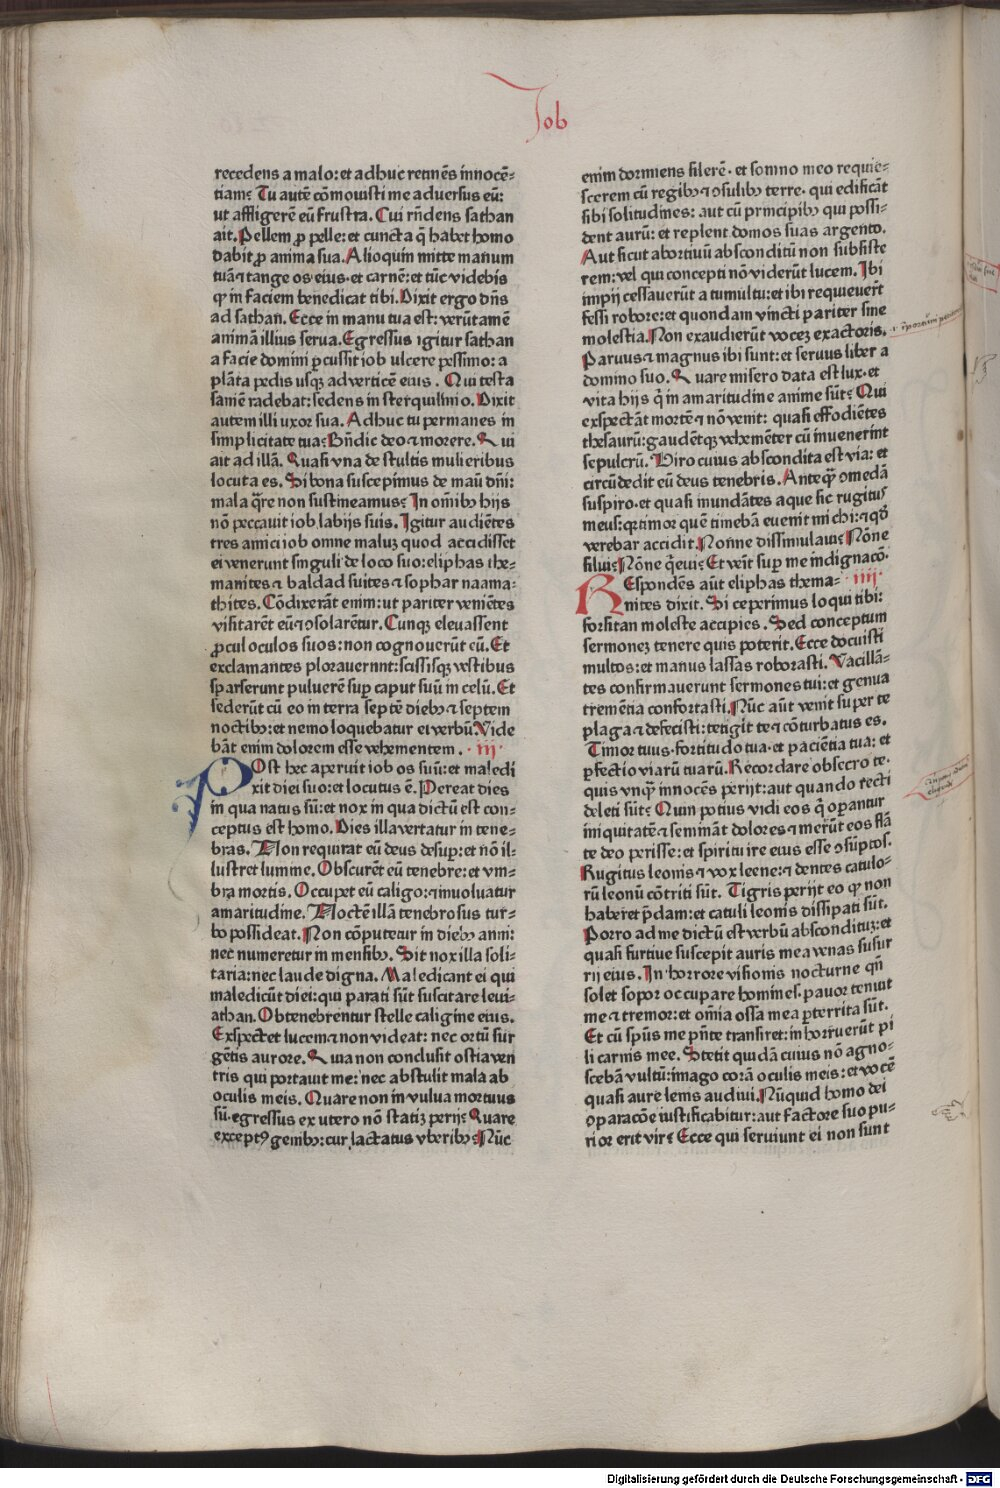 Job
recedens a malo: et adhuc retinēs innocē⸗
tiam? Tu autē cōmovisti me adversus eū:
ut affligerē eū frustra. Cui rñdens sathan
ait. Pellem ꝓ pelle: et cuncta q̄ habet homo
dabit ꝓ anima sua. Alioquin mitte manum
tuā ⁊ tange os eius ⸱ et carnē: et tūc videbis
ꝙ in faciem benedicat tibi. Dixit ergo dñs
ad sathan. Ecce in manu tua est: verūtamē
animā illius serva. Egressus igitur sathan
a facie domini ꝑcussit iob ulcere pessimo: a
plāta pedis usqꝫ ad verticē eius. Qui testa
saniē radebat: sedens in sterquilinio. Dixit
autem illi uxor sua. Adhuc tu permanes in
simplicitate tua? Bn̄dic deo ⁊ morere. Qui
ait ad illā. Quasi vna de stultis mulieribus
locuta es. Si bona suscepimus de manu dñi:
mala q̄re non sustineamus? In om̄ibꝫ hijs
nō peccavit iob labijs suis. Igitur audiētes
tres amici iob omne maluꝫ quod accidisset
ei venerunt singuli de loco suo: eliphas the⸗
manites ⁊ baldad suites ⁊ sophar naama⸗
thites. Cōdixerāt enim: ut pariter veniētes
visitarēt eū ⁊ ꝯsolarētur. Cunqꝫ elevassent
ꝓcul oculos suos: non cognoverūt eū. Et
exclamantes ploraverunt: scissisqꝫ vestibus
sparserunt pulverē suꝑ caput suū in celū. Et
sederūt cū eo in terra septē diebꝫ ⁊ septem
noctibꝫ: et nemo loquebatur ei verbū. Vide
bāt enim dolorem esse vehementem. ⸱ iii ⸱
Post hec aperuit iob os suū: et maledi
xit diei suo: et locutus ē. Pereat dies
in qua natus sū: et nox in qua dictū est con⸗
ceptus est homo. Dies illa vertatur in tene⸗
bras. Non requirat eū deus desuꝑ: et nō il⸗
lustret lumine. Obscurēt eū tenebre: et vm⸗
bra mortis. Occupet eū caligo: ⁊ involvatur
amaritudine. Noctē illā tenebrosus tur⸗
bo possideat. Non cōputetur in diebꝫ anni:
nec numeretur in mensibꝫ. Sit nox illa soli⸗
taria: nec laude digna. Maledicant ei qui
maledicūt diei: qui parati sūt suscitare levi⸗
athan. Obtenebrentur stelle caligine eius.
Exspectet lucem ⁊ non videat: nec ortū sur
gētis aurore. Quia non conclusit ostia ven
tris qui portavit me: nec abstulit mala ab
oculis meis. Quare non in vulva mortuus
sū ⸱ egressus ex utero nō statiꝫ perij? Quare
exceptꝰ genibꝫ: cur lactatus vberibꝫ? Nūc
enim dormiens silerē ⸱ et somno meo requie⸗
scerem cū regibꝫ ⁊ ꝯsulibꝫ terre ⸱ qui edificāt
sibi solitudines: aut cū principibꝫ qui possi⸗
dent aurū: et replent domos suas argento.
Aut sicut abortivū absconditū non subsiste
rem: vel qui concepti nō viderūt lucem. Ibi
impij cessaverūt a tumultu: et ibi requieverūt
fessi robore: et quondam vincti pariter sine
molestia. Non exaudierūt voceꝫ exactoris.
Parvus ⁊ magnus ibi sunt: et servus liber a
domino suo. Quare misero data est lux ⸱ et
vita hijs q̄ in amaritudine anime sūt? Qui
exspectāt mortē ⁊ nō venit: quasi effodiētes
thesaurū: gaudētqꝫ vehemēter cū invenerint
sepulcrū. Viro cuius abscondita est via: et
circūdedit eū deus tenebris. Anteqꝫ ꝯmedā
suspiro ⸱ et quasi inundātes aque sic rugitus
meus: qꝛ timor quē timebā evenit michi: ⁊ qd̄
verebar accidit. Nonne dissimulavi? Nōne
silui? Nōne q̄evi? Et veīt suꝑ me indignaco̅.
Respondēs aūt eliphas thema⸗ ⸱ iiii ⸱
nites dixit. Si ceperimus loqui tibi:
forsitan moleste accipies. Sed conceptum
sermoneꝫ tenere quis poterit. Ecce docuisti
multos: et manus lassas roborasti. Vacillā⸗
tes confirmaverunt sermones tui: et genua
trementia confortasti. Nūc aūt venit super te
plaga ⁊ defecisti: tetigit te ⁊ cōturbatus es.
Timor tuus ⸱ fortitudo tua ⸱ et paciētia tua: et
ꝑfectio viarū tuarū. Recordare obsecro te ⸱
quis vnqꝫ innocēs perijt: aut quando recti
deleti sūt? Quin potius vidi eos q̄ oꝑantur
iniquitatē ⁊ semināt dolores ⁊ metūt eos flā
te deo perisse: et spiritu ire eius esse ꝯsūptos.
Rugitus leonis ⁊ vox leene: ⁊ dentes catulo⸗
rū leonū cōtriti sūt. Tigris perijt eo ꝙ non
haberet p̄dam: et catuli leonis dissipati sūt.
Porro ad me dictū est verbū absconditū: et
quasi furtive suscepit auris mea venas susur
rij eius. In horrore visionis nocturne qn̄
solet sopor occupare homines ⸱ pavor tenuit
me ⁊ tremor: et om̄ia ossa mea ꝑterrita sūt.
Et cū sp̄us me p̄nte transiret: inhorruerūt pi
li carnis mee. Stetit quidā cuius nō agno⸗
scebā vultū: imago corā oculis meis: et vocē
quasi aure lenis audivi. Nūquid homo dei
oparacōe iustificabitur: aut factore suo pu⸗
rior erit vir? Ecce qui serviunt ei non sunt
Digitalisierung gefördert durch die Deutsche Forschungsgemeinschaft - DFG